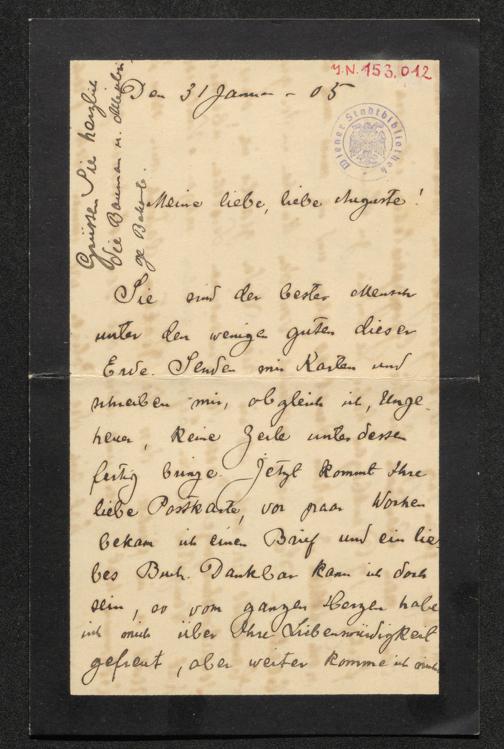 J.N. 153.012
Den 31 Januar - 05
Wiener Stadtbibliothek
Grüssen Sie herzlich
die Bauman u.
Meine liebe, liebe Auguste!
Sie sind der bester Mensch
unter den wenigen guten dieser
Erde. Senden mir Karten und
schreiben mir, obgleich ich, Unge-
heuer, keine Zeile unterdessen
fertig bringe. Jetzt kommt Ihre
liebe Postkarte, vor paar Wochen
bekam ich einen Brief und ein lie-
bes Buch. Dankbar kann ich doch
sein, so vom ganzen Herzen habe
ich mich über Ihre Liebenswürdigkeit
gefreut, aber weiter komme ich nicht